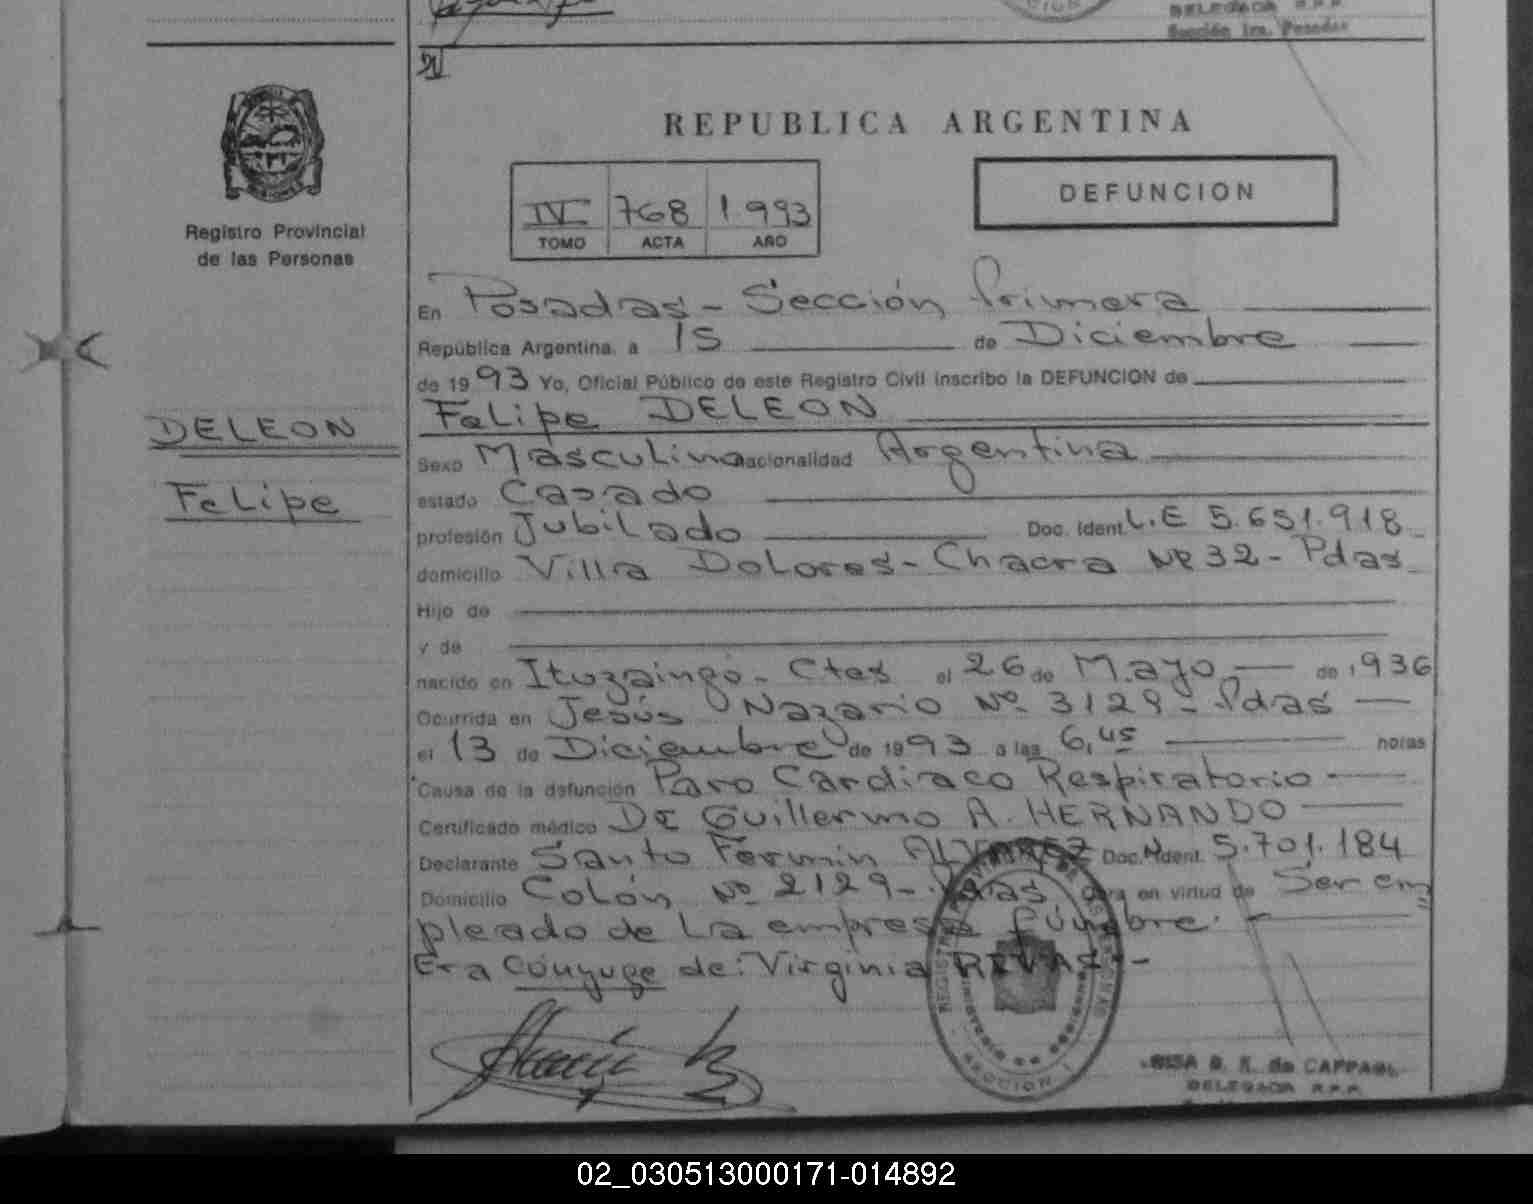 DELEGADA R.P.P.
Sección 1ra. Posadas
REPUBLICA ARGENTINA
IV 768 1.993
TOMO ACTA AÑO
DEFUNCION
Registro Provincial
de las Personas
DELEON
Felipe
En Posadas - Sección Primera
República Argentina, a 15 de Diciembre
de 1993 Yo, Oficial Público de este Registro Civil inscribo la DEFUNCION de
Felipe DELEON
Sexo Masculino nacionalidad Argentina
estado Casado
profesión Jubilado Doc. Ident. L.E 5.651.918
domicilio Villa Dolores - Chacra Nº 32 - Pdas
Hijo de
y de
nacido en Ituzaingó - Ctes el 26 de Mayo de 1936
Ocurrida en Jesús Nazario Nº 3129 - Pdas
el 13 de Diciembre de 1993 a las 6,45 horas
Causa de la defunción Paro Cardiaco Respiratorio
Certificado médico Dr Guillermo A. HERNANDO
Declarante Santo Fermin ALVAREZ Doc. Ident. 5.701.184
Domicilio Colón Nº 2129 - Pdas obra en virtud de Ser em
pleado de La empresa fúnebre.
Era Conyuge de: Virginia RIVAS -
SECCION 1
de CAPPAGLI
DELEGADA R.P.P.
02_030513000171-014892